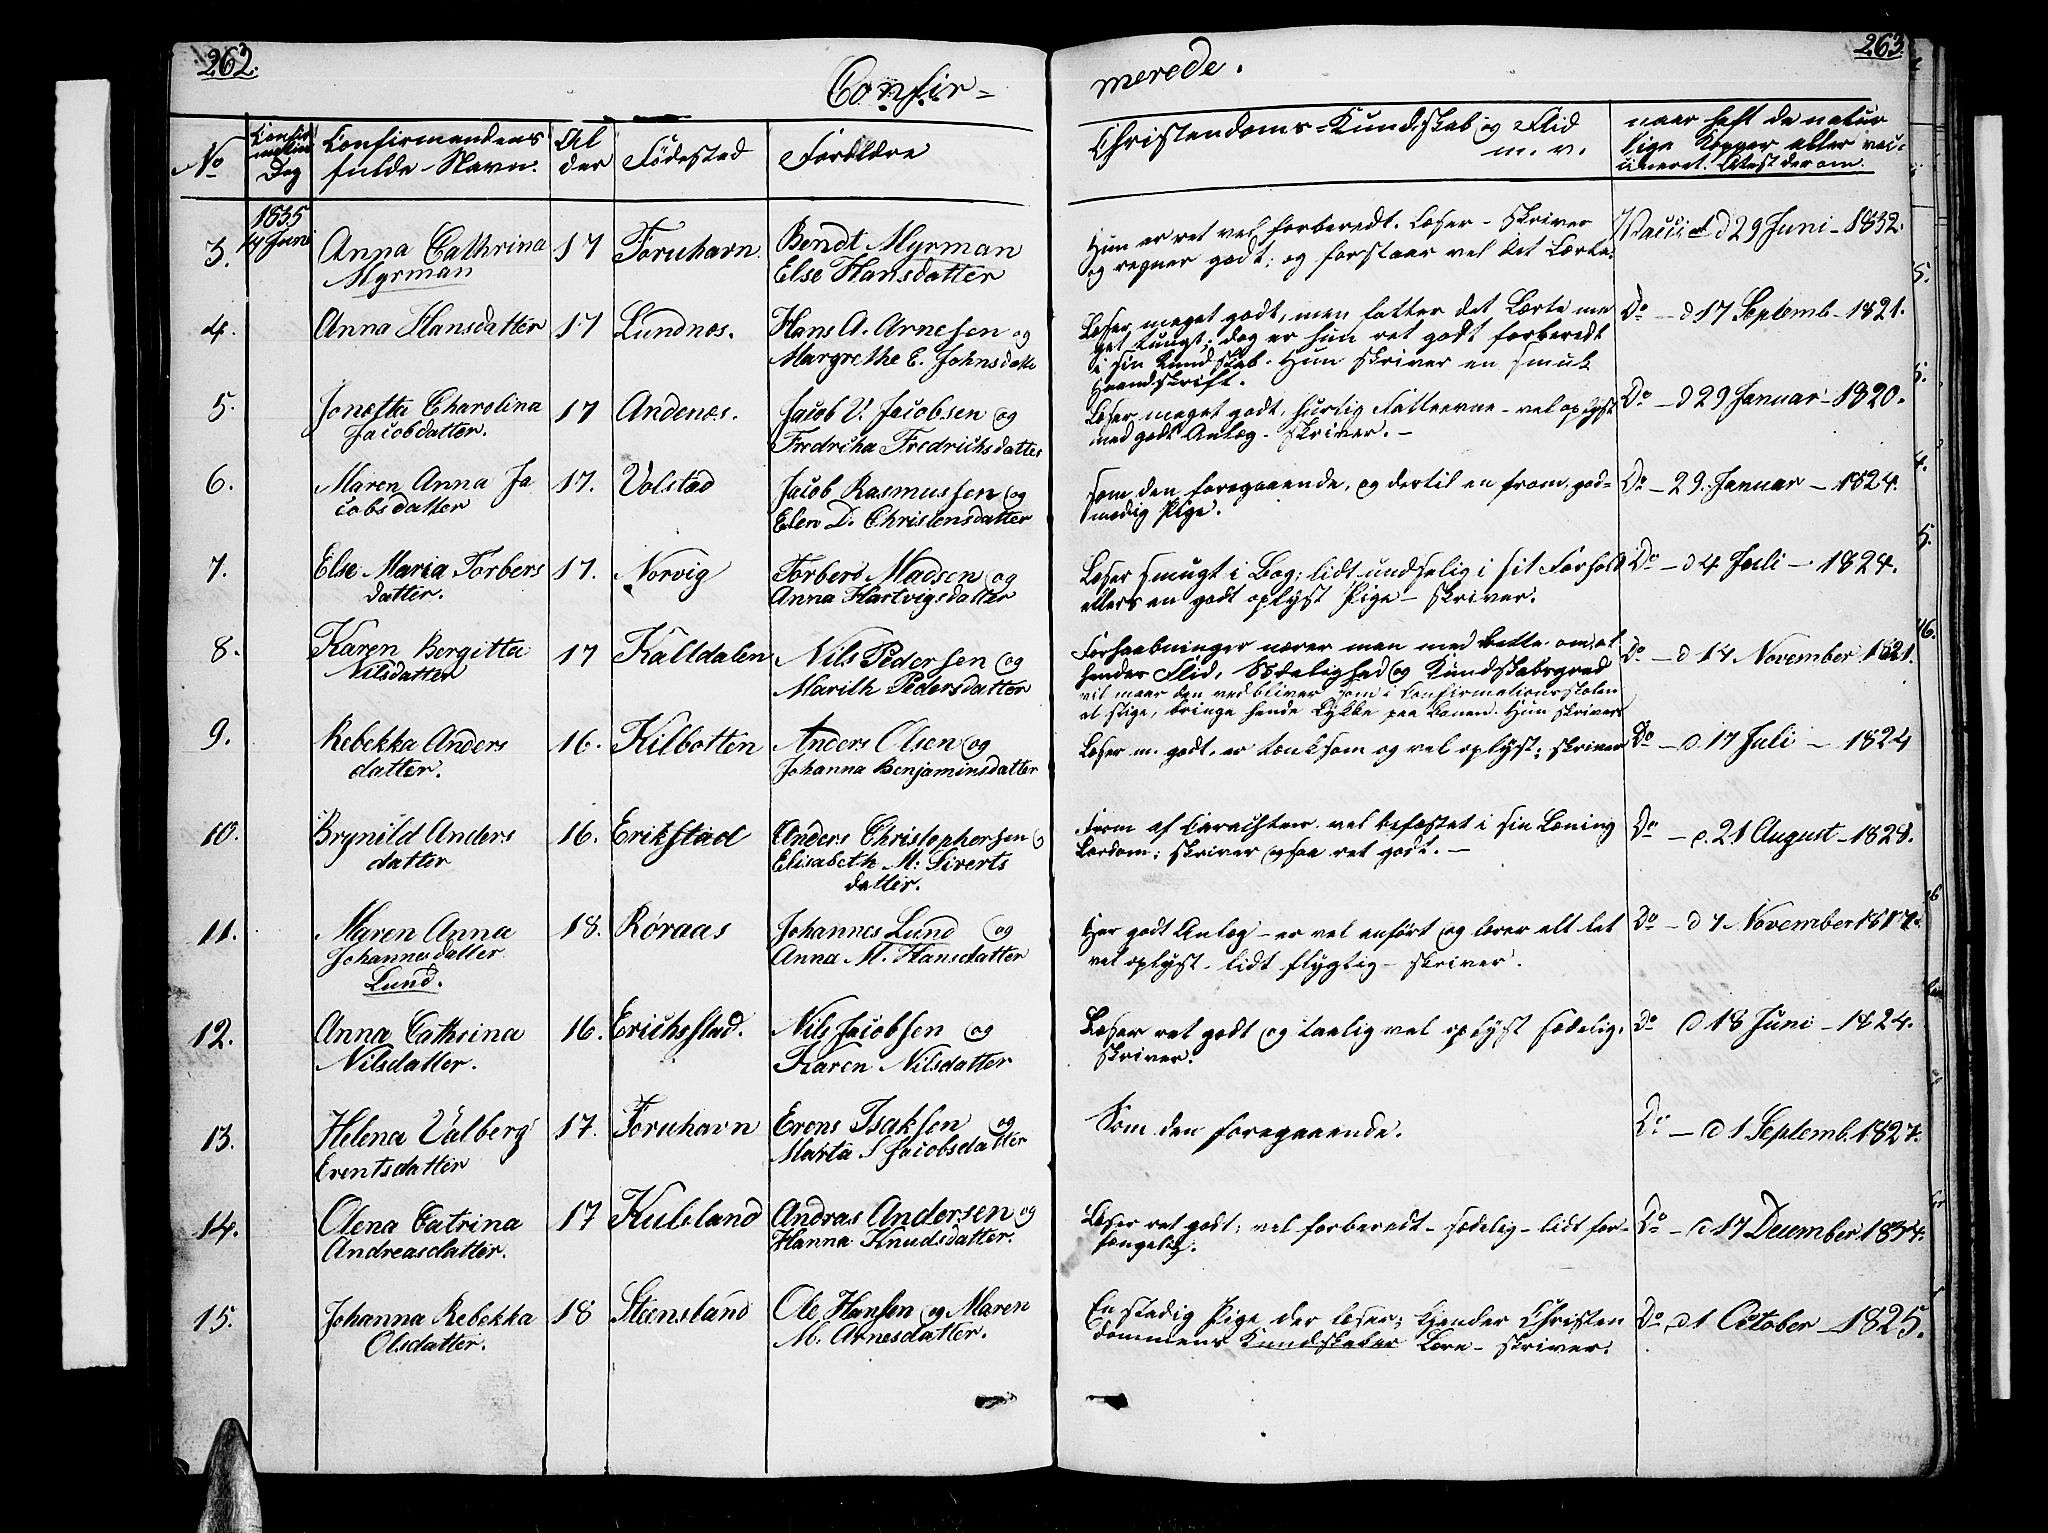 262.
263.
Confir=
merede.
No
Confirmations Dag
Confirmandens fulde Navn.
Alder
Fødested
Forældre
Christendoms-Kundskab og Flid m. v.
naar havt de naturlige Kopper eller vaccineret. Attest derom.
1835
14 Juni
3. Anna Cathrina 17 Foruhavn Bendt Myrman
Myrman Else Hansdatter
Hun er ret vel forberedt. Læser - skriver
og regner godt; og forstaar vel det Lærte.
d 29 Juni - 1832.
4. Anna Hansdatter 17 Lundnæs. Hans A. Arnesen og
Margrethe E. Johnsdatt
Læser meget godt, men fatter det Lærte me
get tungt; dog er hun ret godt forberedt
i sin Kundskab. Hun skriver en smuk
Haandskrift.
Do - d 17 Septemb - 1821.
5. Jonetta Charolina 17 Andenæs. Jacob V. Jacobsen og
Jacobdatter. Fredricha Fredrichsdatter
Læser meget godt, hurtig Fatteevne - vel oplyst
med godt Anlæg - skriver. -
Do - d 29 Januar - 1820.
6. Maren Anna Ja 17. Volstad Jacob Rasmussen og
cobsdatter Elen D. Christensdatter
Som den foregaaende, og dertil en from, god=
modig Pige.
Do - 29. Januar - 1824.
7. Else Maria Torbers 17. Norvig Torber Madsen og
datter. Anna Hartvigsdatter
Læser smugt i Bog; lidt undselig i sit Forhold
ellers en godt oplyst Pige - skriver.
Do - d 4 Juli - 1824.
8. Karen Bergitta 17 Kalldalen Nils Pedersen og
Nilsdatter Marith Pedersdatter
Forhaabninger nærer man med Rette om, at
hendes Flid, Sædelighed og Kundskabsgrad
vil naar den vedbliver som i Confirmationsstolen
at stige, bringe hende Lykke paa Banen. Hun skriver
Do - d 14 November 1821.
9. Rebekka Anders 16. Kilbotten Anders Olsen og
datter. Johanna Benjaminsdatter
Læser m. godt. er tænksom og vel oplyst; skriver
Do - d 17 Juli - 1824
10. Brynild Anders 16. Erikstad Anders Christophersen o
datter Elisabeth M: Siverts
datter.
From af Carachteer. vel befæstet i sin
Lærdom; skriver ogsaa ret godt. -
Do - d. 21 August - 1828.
11. Maren Anna 18. Røraas Johannes Lund og
Johannesdatter Anna M. Hansdatter
Lund.
Har godt Anlæg - er vel anført og lærer alt let
vel oplyst. lidt flygtig - skriver.
Do - d 7 November 1817.
12. Anna Cathrina 16. Erichsstad. Nils Jacobsen og
Nilsdatter. Karen Nilsdatter
Læser ret godt og taalig vel oplyst sædelig.
skriver.
Do d 18 Juni - 1824.
13. Helena Valberg 17. Foruhavn Erens Isaksen og
Erentsdatter Marta S Jacobsdatter
Som den foregaaende.
Do - d 1 Septemb. 1827.
14. Olena Catrina 17 Kulsland Andras Andersen og
Andreasdatter. Hanna Knudsdatter.
Læser ret godt; vel forberedt - sædelig - lidt for=
fængelig.
Do - d 17 December
15. Johanna Rebekka 18 Steensland Ole Hansen og Maren
Olsdatter. M. Arnesdatter.
En stadig Pige der læser; kjender Christen
dommens Kundskaber Lære - skriver.
Do d 1 October - 1825.